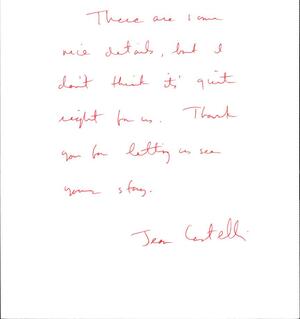 There are some
nice details, but I
don't think it's quite
right for us. Thank
you for letting us see
your story.
Jean Castelli